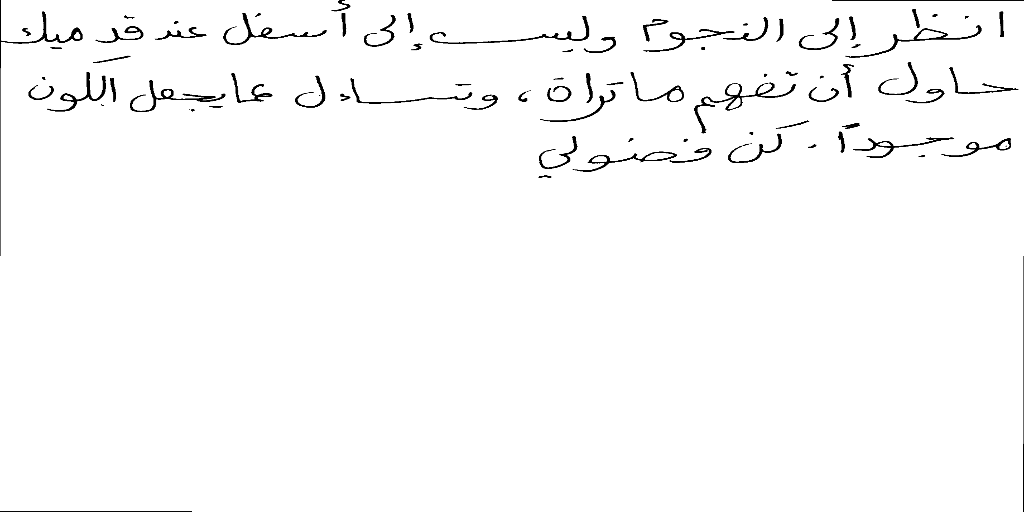 انظر إلى النجوم وليس إلى أسفل عند قدميك
حاول أن تفهم ما تراة ، وتساءل عما يجعل الكون
موجوداً . كن فضولي